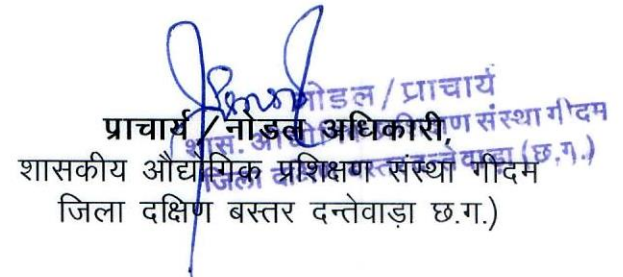 नोडल / प्राचार्य
शास. औद्योगिक प्रशिक्षण संस्था गीदम
जिला दक्षिण बस्तर दन्तेवाड़ा (छ.ग.)
प्राचार्य / नोडल अधिकारी,
शासकीय औद्योगिक प्रशिक्षण संस्था गीदम
जिला दक्षिण बस्तर दन्तेवाड़ा छ.ग.)